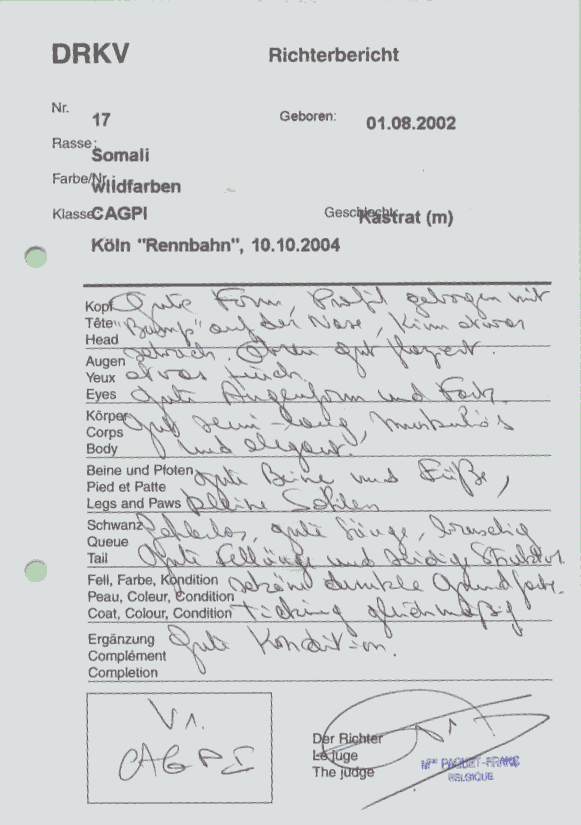 DRKV Richterbericht
Nr. 17 Geboren: 01.08.2002
Rasse: Somali
Farbe/Nr. Wildfarben
Klasse CAGPI Geschlecht: Kastrat (m)
Köln "Rennbahn", 10.10.2004
Kopf Gute Form, Profil gebogen mit
Tête "Bump" auf der Nase, Kinn etwas
Head schwach. Ohren gut
Augen etwas
Yeux
Eyes Gute Augenform und Farbe.
Körper Gut semi-lang, muskulös
Corps
Body und elegant.
Beine und Pfoten Gute Beine und Füße,
Pied et Patte
Legs and Paws kleine Sohlen
Schwanz Fehlerlos, gute Länge, buschig
Queue
Tail Gute Felllänge und seidige Struktur
Fell, Farbe, Kondition schöne dunkle Grundfarbe.
Peau, Coleur, Condition
Coat, Colour, Condition Ticking gleichmäßig
Ergänzung Gute Kondition.
Complément
Completion
V1.
CAGPI
Der Richter
Le juge
The judge
Mme PAQUET-FRANC
BELGIQUE